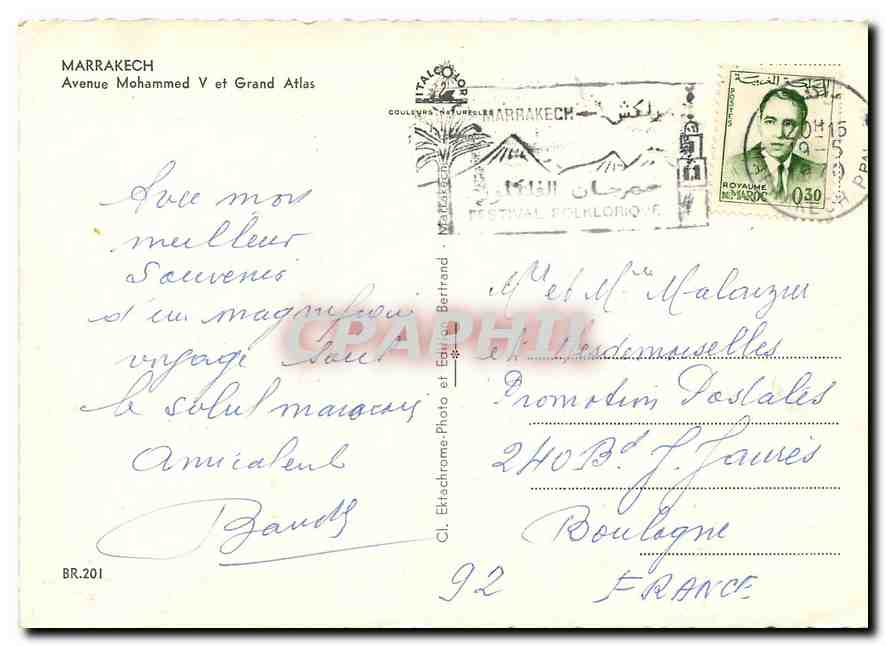 MARRAKECH
Avenue Mohammed V et Grand Atlas
ITALCOLOR
COULEURS NATURELLES
MARRAKECH مراكش
مهرجان الفلكلور
FESTIVAL FOLKLORIQUE
المملكة المغربية
POSTES
ROYAUME
DU MAROC 0,30
20H15
Avec mon
meilleur
souvenir
d'un magnifique
voyage sous
le soleil marocain
Amicalement
BR.201
Cl. Ektachrome-Photo et Edition Bertrand - Marrakech
CPAPHIL
Mr et Mme
et Mesdemoiselles
Promotion Postales
240 Bd J. Jaurès
Boulogne
92 FRANCE